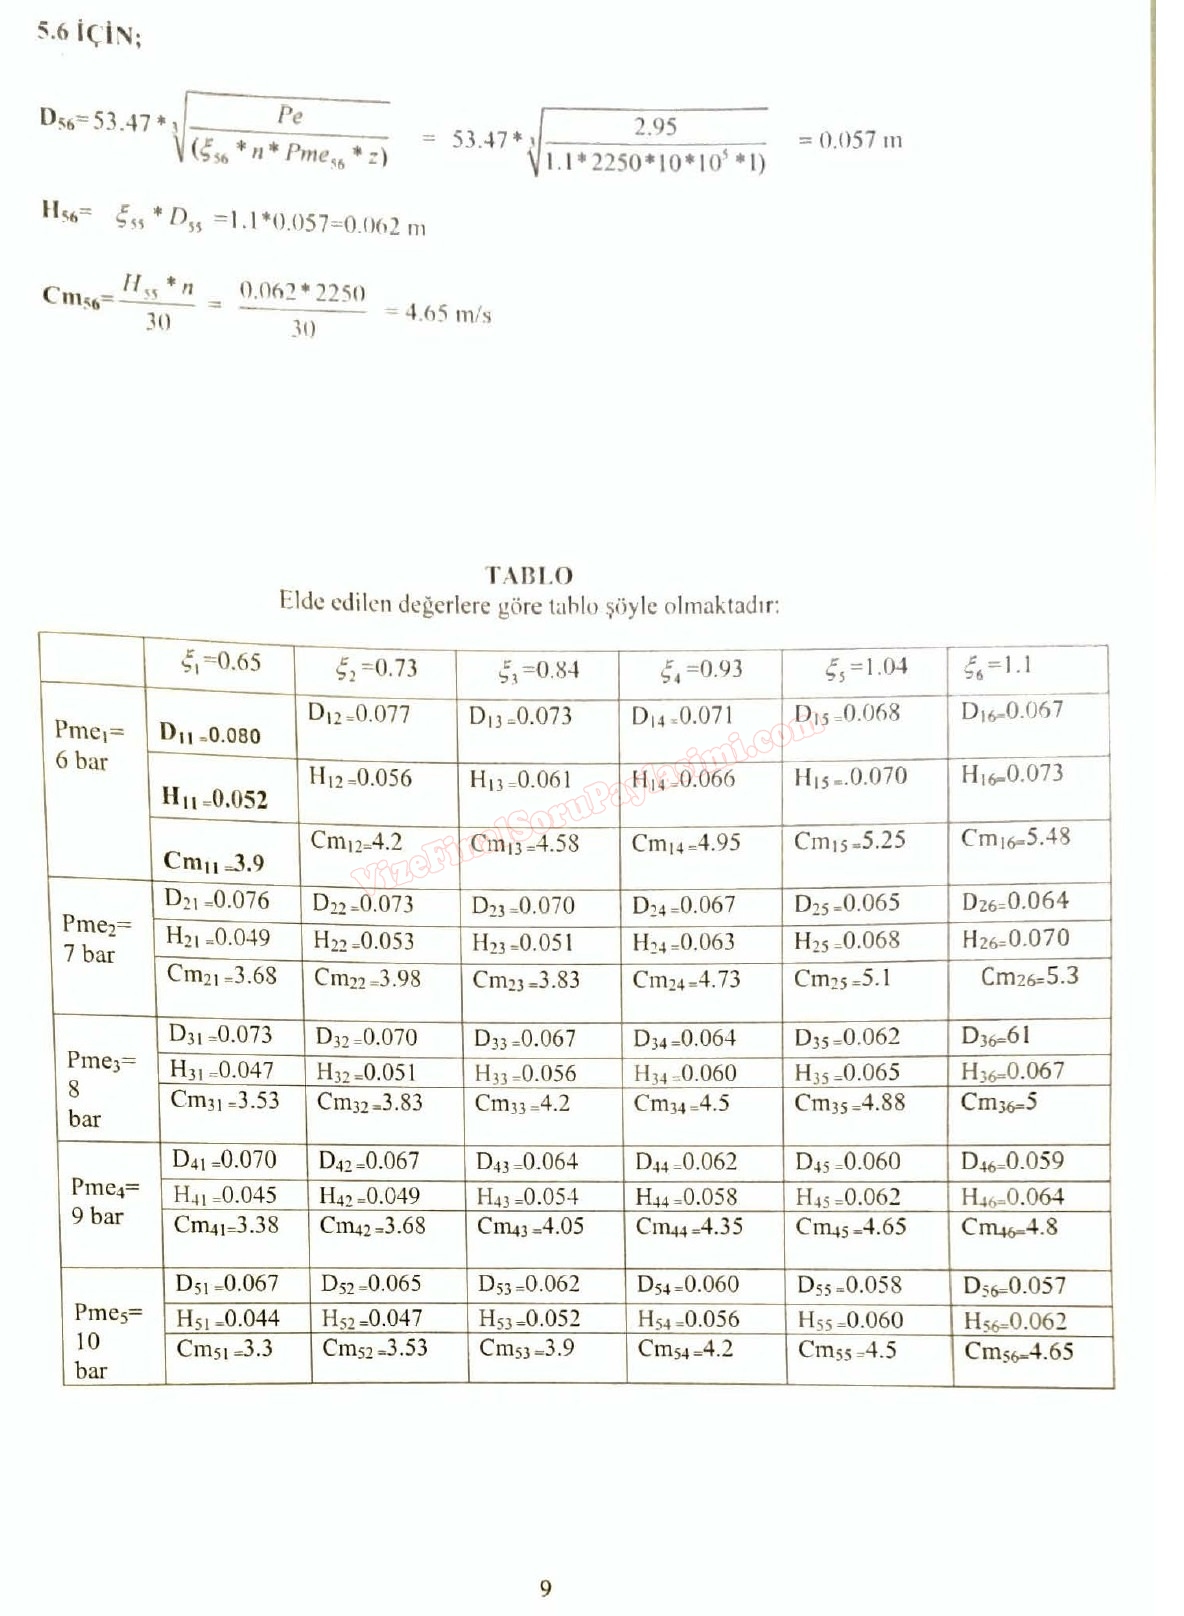 5.6 İÇİN;
D56=53.47 * ∛(Pe / (ξ56 * n * Pme56 * z)) = 53.47 * ∛(2.95 / 1.1*2250*10*10^5 *1)) = 0.057 m
H56= ξ55 * D55 =1.1*0.057=0.062 m
Cm56= H55 * n / 30 = 0.062*2250 / 30 = 4.65 m/s
TABLO
Elde edilen değerlere göre tablo şöyle olmaktadır:
ξ1=0.65 ξ2=0.73 ξ3=0.84 ξ4=0.93 ξ5=1.04 ξ6=1.1
Pme1= 6 bar
D11=0.080 D12=0.077 D13=0.073 D14=0.071 D15=0.068 D16=0.067
H11=0.052 H12=0.056 H13=0.061 H14=0.066 H15=.0.070 H16=0.073
Cm11=3.9 Cm12=4.2 Cm13=4.58 Cm14=4.95 Cm15=5.25 Cm16=5.48
Pme2= 7 bar
D21=0.076 D22=0.073 D23=0.070 D24=0.067 D25=0.065 D26=0.064
H21=0.049 H22=0.053 H23=0.051 H24=0.063 H25=0.068 H26=0.070
Cm21=3.68 Cm22=3.98 Cm23=3.83 Cm24=4.73 Cm25=5.1 Cm26=5.3
Pme3= 8 bar
D31=0.073 D32=0.070 D33=0.067 D34=0.064 D35=0.062 D36=61
H31=0.047 H32=0.051 H33=0.056 H34=0.060 H35=0.065 H36=0.067
Cm31=3.53 Cm32=3.83 Cm33=4.2 Cm34=4.5 Cm35=4.88 Cm36=5
Pme4= 9 bar
D41=0.070 D42=0.067 D43=0.064 D44=0.062 D45=0.060 D46=0.059
H41=0.045 H42=0.049 H43=0.054 H44=0.058 H45=0.062 H46=0.064
Cm41=3.38 Cm42=3.68 Cm43=4.05 Cm44=4.35 Cm45=4.65 Cm46=4.8
Pme5= 10 bar
D51=0.067 D52=0.065 D53=0.062 D54=0.060 D55=0.058 D56=0.057
H51=0.044 H52=0.047 H53=0.052 H54=0.056 H55=0.060 H56=0.062
Cm51=3.3 Cm52=3.53 Cm53=3.9 Cm54=4.2 Cm55=4.5 Cm56=4.65
VizeFinalSoruPaylasimi.com
9